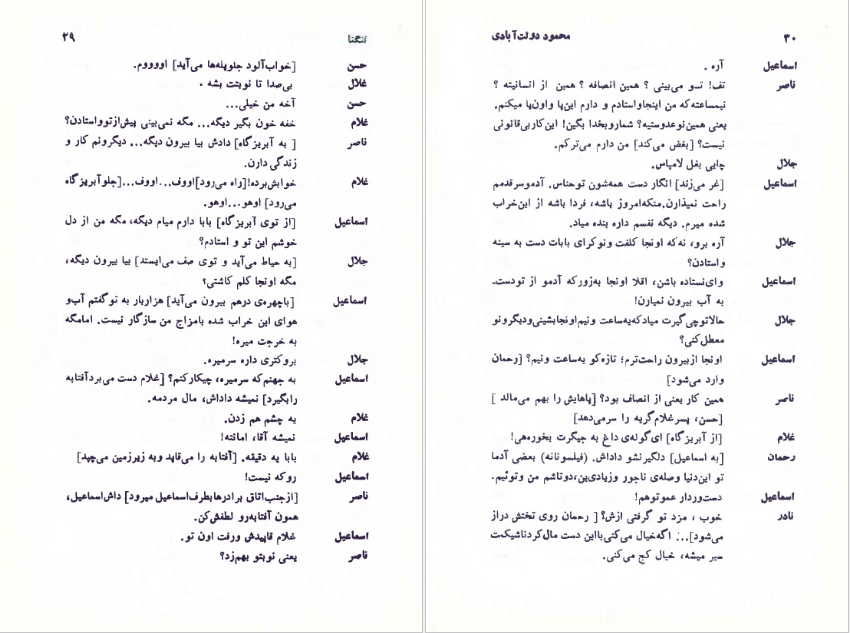 ۲۹ تنگنا
حسن [خواب‌آلود جلوپله‌ها می‌آید] اووووم.
غلال بی‌صدا تا نوبتت بشه .
حسن آخه من خیلی...
غلام خفه خون بگیر دیگه... مگه نمی‌بینی پیش‌ازتوواستادن؟
ناصر [ به آبریزگاه] دادش بیا بیرون دیگه... دیگرونم کار و
زندگی دارن.
غلام خوابش‌برده![راه می‌رود]اووف...اووف...[جلوآبریزگاه
می‌رود] اوهو...اوهو.
اسماعیل [از توی آبریزگاه] بابا دارم میام دیگه، مگه من از دل
خوشم این تو و استادم؟
جلال [به حیاط می‌آید و توی صف می‌ایستد] بیا بیرون دیگه،
مگه اونجا کلم کاشتی؟
اسماعیل [باچهره‌ی درهم بیرون می‌آید] هزاربار به تو گفتم آب‌و
هوای این خراب شده بامزاج من سازگار نیست. امامگه
به خرجت میره!
جلال بروکتری داره سرمیره.
اسماعیل به جهنم‌که سرمیره، چیکارکنم؟ [غلام دست می‌بردآفتابه
رابگیرد] نمیشه داداش، مال مردمه.
غلام به چشم هم زدن.
اسماعیل نمیشه آقا، امانته!
غلام بابا یه دقیقه. [آفتابه را می‌قاپد وبه زیرزمین می‌چپد]
اسماعیل روکه نیست!
ناصر [ازجنب‌اتاق برادرهابطرف‌اسماعیل میرود] داش‌اسماعیل،
همون آفتابه‌رو لطفش‌کن.
اسماعیل غلام قاپیدش ورفت اون تو.
ناصر یعنی نوبتو بهم‌زد؟
محمود دولت‌آبادی ۳۰
اسماعیل آره .
ناصر تف! تـو می‌بینی ؟ همین انصافه ؟ همین از انسانیته ؟
نیمساعته‌که من اینجاواستادم و دارم این‌پا واون‌پا میکنم.
یعنی همین‌نوعدوستیه؟ شماروبخدا بگین! این‌کاربی‌قانونی
نیست؟ [بغض می‌کند] من دارم می‌ترکم.
جلال چایی بغل لامپاس.
اسماعیل [غر می‌زند] انگار دست همه‌شون توحناس. آدموسرقدمم
راحت نمیذارن.منکه‌امروز باشه، فردا باشه از این‌خراب
شده میرم. دیگه نفسم داره بنده میاد.
جلال آره برو، نه‌که اونجا کلفت ونوکرای بابات دست به سینه
واستادن؟
اسماعیل وای‌نستاده باشن، اقلا اونجا به‌زورکه آدمو از تودست‌
به آب بیرون نمیارن!
جلال حالاتوچی‌گیرت میادکه‌یه‌ساعت ونیم‌اونجابشینی‌ودیگرونو
معطل‌کنی؟
اسماعیل اونجا ازبیرون راحت‌ترم؛ تازه‌کو یه‌ساعت ونیم؟ [رحمان
وارد می‌شود]
ناصر همین کار یعنی از انصاف بود؟ [پاهایش را بهم می‌مالد ]
[حسن، پسرغلام‌گریه را سرمی‌دهد]
غلام [از آبریزگاه] ای‌گوله‌ی داغ به جیگرت بخوره‌هی!
رحمان [به اسماعیل] دلگیرنشو داداش. (فیلسوفانه) بعضی آدما
تو این‌دنیا وصله‌ی ناجور وزیادی‌ین،دوتاشم من وتوئیم.
اسماعیل دست‌وردار عموتوهم!
نادر خوب ، مزد تو گرفتی ازش؟ [ رحمان روی تختش دراز
می‌شود]... اگه‌خیال می‌کنی‌بااین دست مال‌کردناشیکمت
سیر میشه، خیال کج می‌کنی.